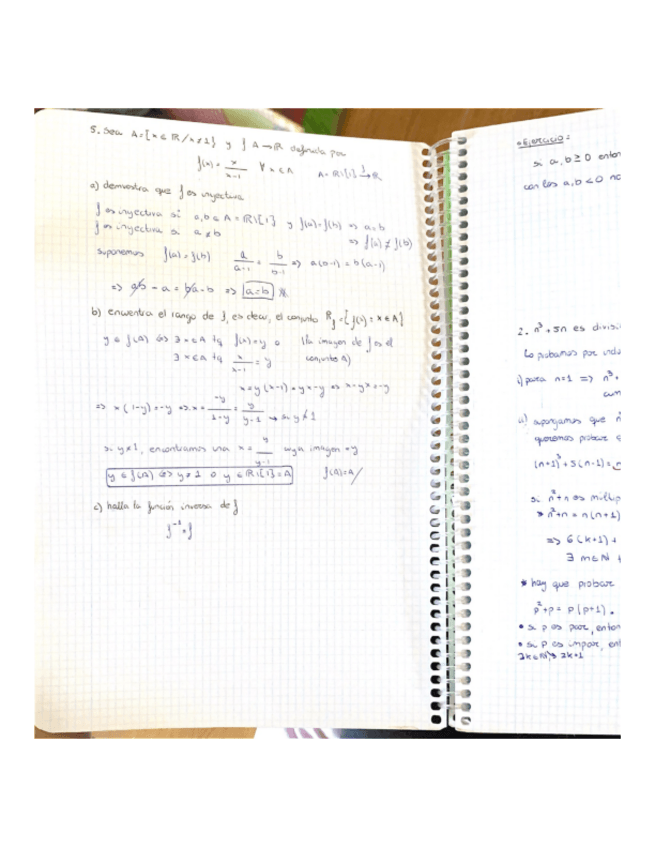 5. Sea A={x ∈ ℝ / x ≠ 1} y f A → ℝ definida por
f(x) = x/(x-1) ∀ x ∈ A A = ℝ\{1} f→ ℝ
a) demuestra que f es inyectiva
f es inyectiva si a,b ∈ A = ℝ\{1} y f(a)=f(b) => a=b
f es inyectiva si a ≠ b => f(a) ≠ f(b)
suponemos f(a)=f(b) a/(a-1) = b/(b-1) => a(b-1) = b(a-1)
=> ab - a = ba - b => a=b
b) encuentra el rango de f, es decir, el conjunto R_f = {f(x) = x ∈ A}
y ∈ f(A) <=> ∃ x ∈ A tq f(x) = y o (la imagen de f es el
∃ x ∈ A tq x/(x-1) = y conjunto A)
x = y(x-1) = yx-y <=> x-yx = -y
=> x(1-y) = -y <=> x = -y/(1-y) = y/(y-1) → si y ≠ 1
si y ≠ 1, encontramos una x = y/(y-1) cuya imagen = y
y ∈ f(A) <=> y ≠ 1 o y ∈ ℝ\{1} = A f(A) = A
c) halla la función inversa de f
f⁻¹ = f
ejercicio:
si a,b ≥ 0
con los a,b < 0
2. n³ + 5n es
lo probamos por
i) para n=1 => n³ +
ii) supongamos que
queremos probar
(n+1)³ + 5(n+1) =
si n²+n es
* n²+n = n(n+1)
=> 6(k+1) +
∃ m ∈ ℕ
* hay que probar
p²+p = p(p+1).
• si p es par,
• si p es impar,
2k+1